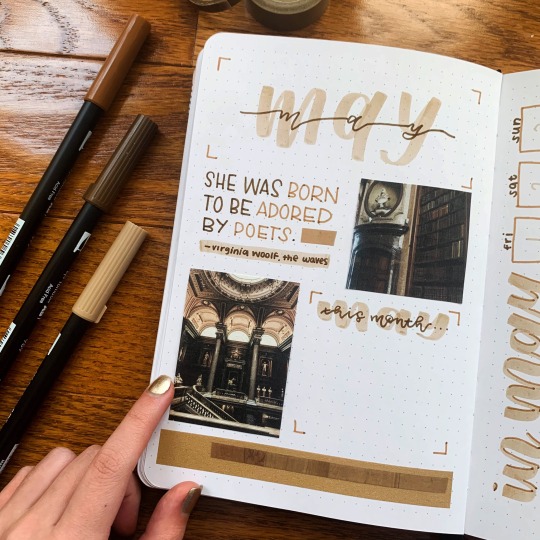 may
may
SHE WAS BORN
TO BE ADORED
BY POETS.
-virginia woolf, the waves
may
this month...
sun
sat
fri
in may